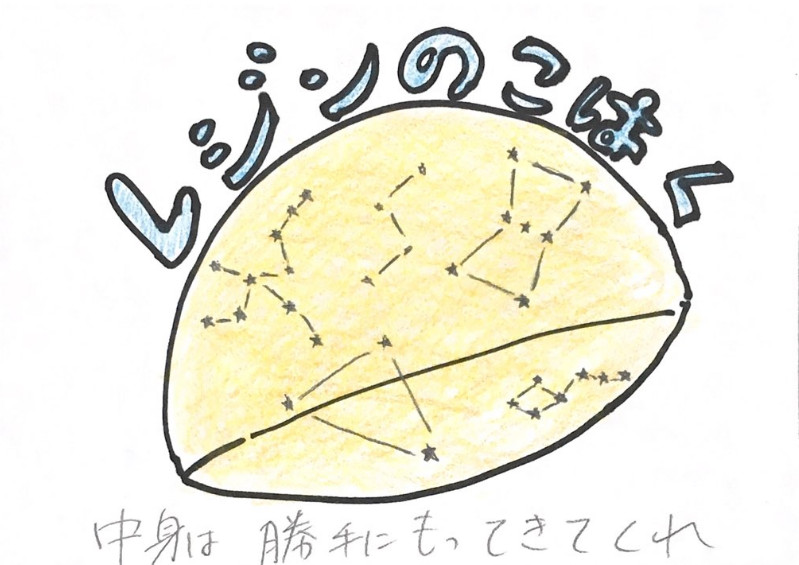 レジンのこはく
中身は 勝手にもってきてくれ